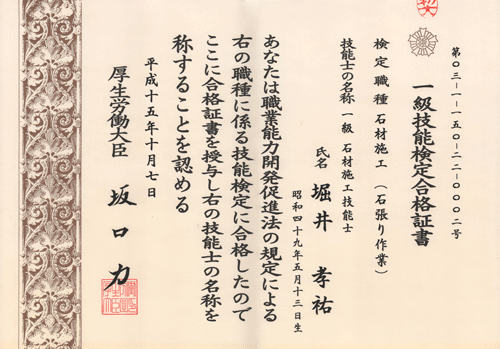 第〇三－一－一五〇－二二－〇〇〇二号
一級技能検定合格証書
検定職種 石材施工 （石張り作業）
技能士の名称 一級 石材施工技能士
氏名 堀井 孝祐
昭和四十九年五月十三日生
あなたは職業能力開発促進法の規定による
右の職種に係る技能検定に合格したので
ここに合格証書を授与し右の技能士の名称を
称することを認める
平成十五年十月七日
厚生労働大臣 坂口力